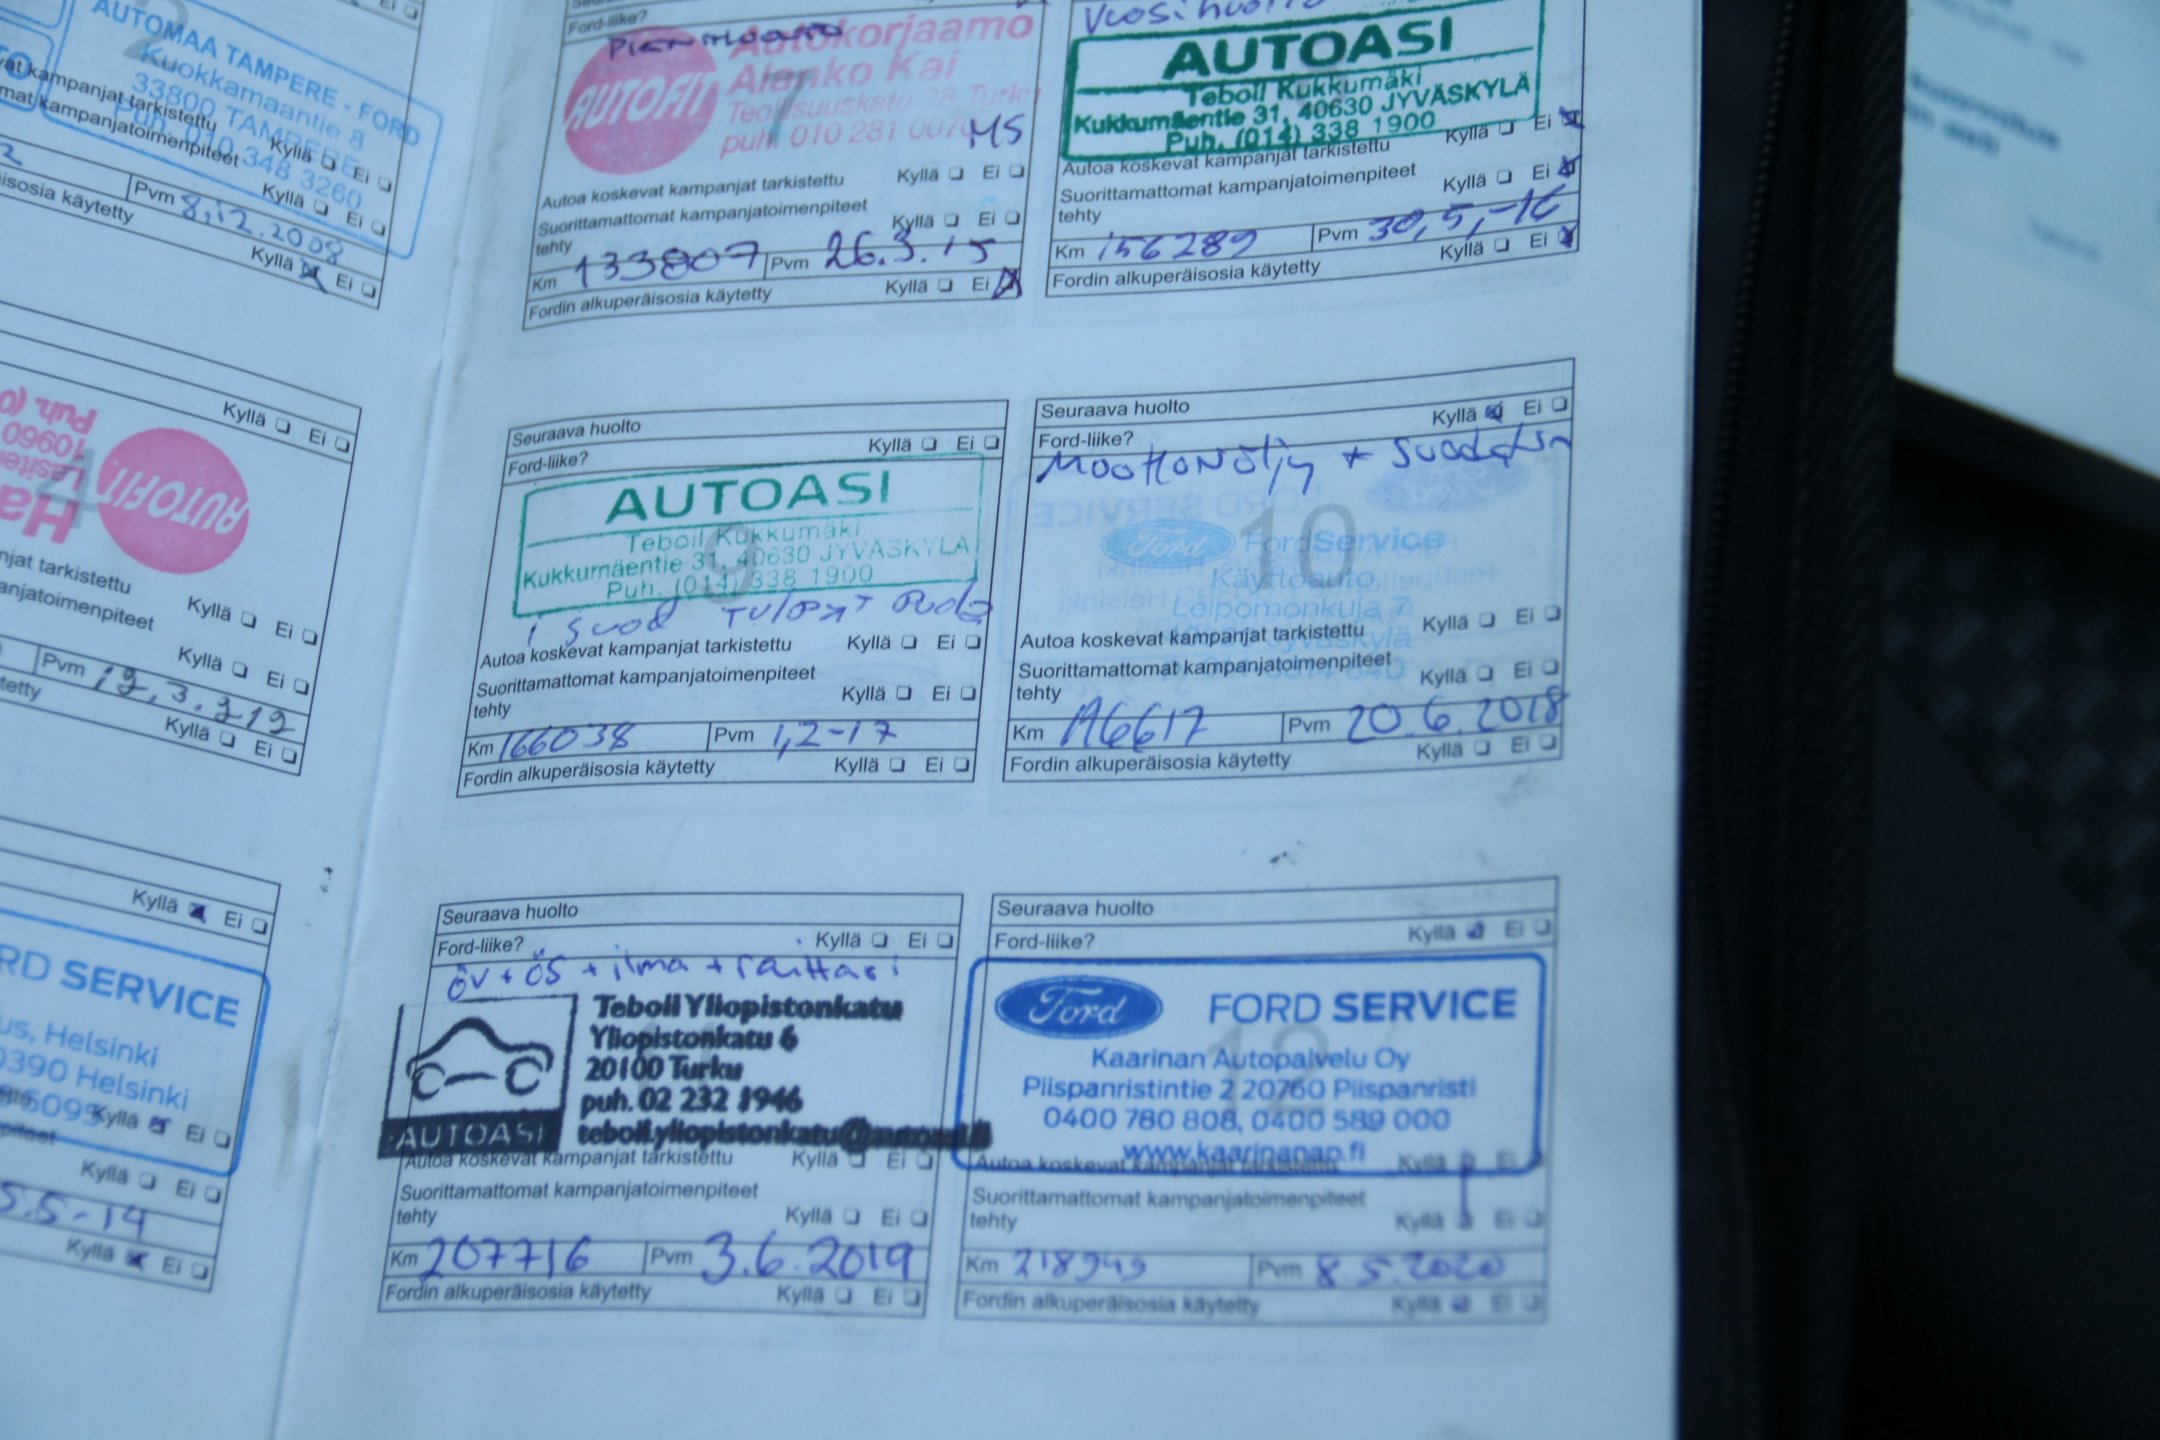 AUTOMAA TAMPERE - FORD
Kuokkamaantie 8
33800 TAMPERE
348 3260
kampanjat tarkistettu Kyllä Ei
kampanjatoimenpiteet Kyllä Ei
Pvm 8.12.2008
käytetty Kyllä Ei
Ford-liike?
AUTOFIT
Autokorjaamo
Alanko Kai
Teollisuuskatu Turku
puh. 010 281
MS
Autoa koskevat kampanjat tarkistettu Kyllä Ei
Suorittamattomat kampanjatoimenpiteet
tehty Kyllä Ei
Km 133807 Pvm 26.3.15
Fordin alkuperäisosia käytetty Kyllä Ei
Vuosihuolto
AUTOASI
Teboil Kukkumäki
Kukkumäentie 31, 40630 JYVÄSKYLÄ
Puh. (014) 338 1900
Autoa koskevat kampanjat tarkistettu Kyllä Ei
Suorittamattomat kampanjatoimenpiteet
tehty Kyllä Ei
Km 156289 Pvm 30,5,-16
Fordin alkuperäisosia käytetty Kyllä Ei
Kyllä Ei
Puh. (0
AUTOFIT
4
tarkistettu Kyllä Ei
Kyllä Ei
Pvm 12.3.212
Kyllä Ei
Seuraava huolto
Ford-liike? Kyllä Ei
AUTOASI
Teboil Kukkumäki
Kukkumäentie 31, 40630 JYVÄSKYLÄ
Puh. (014) 338 1900
Autoa koskevat kampanjat tarkistettu Kyllä Ei
Suorittamattomat kampanjatoimenpiteet
tehty Kyllä Ei
Km 166038 Pvm 1,2-17
Fordin alkuperäisosia käytetty Kyllä Ei
Seuraava huolto
Ford-liike? Kyllä Ei
10
Ford FordService
Käyttöauto
Leipomonkuja 7
Jyväskylä
Autoa koskevat kampanjat tarkistettu Kyllä Ei
Suorittamattomat kampanjatoimenpiteet
tehty Kyllä Ei
Km 196617 Pvm 20.6.2018
Fordin alkuperäisosia käytetty Kyllä Ei
Kyllä Ei
SERVICE
Helsinki
Helsinki
Kyllä Ei
Kyllä Ei
5.5-14
Kyllä Ei
Seuraava huolto
Ford-liike? Kyllä Ei
öv + ös + ilma + raittari
AUTOASI
Teboil Yliopistonkatu
Yliopistonkatu 6
20100 Turku
puh. 02 232 1946
Autoa koskevat kampanjat tarkistettu Kyllä Ei
Suorittamattomat kampanjatoimenpiteet
tehty Kyllä Ei
Km 207716 Pvm 3.6.2019
Fordin alkuperäisosia käytetty Kyllä Ei
Seuraava huolto
Ford-liike? Kyllä Ei
12
Ford FORD SERVICE
Kaarinan Autopalvelu Oy
Piispanristintie 2 20760 Piispanristi
0400 780 808, 0400 589 000
www.kaarinanap.fi
Autoa koskevat kampanjat tarkistettu Kyllä Ei
Suorittamattomat kampanjatoimenpiteet
tehty Kyllä Ei
Km 218949 Pvm 8.5.2020
Fordin alkuperäisosia käytetty Kyllä Ei